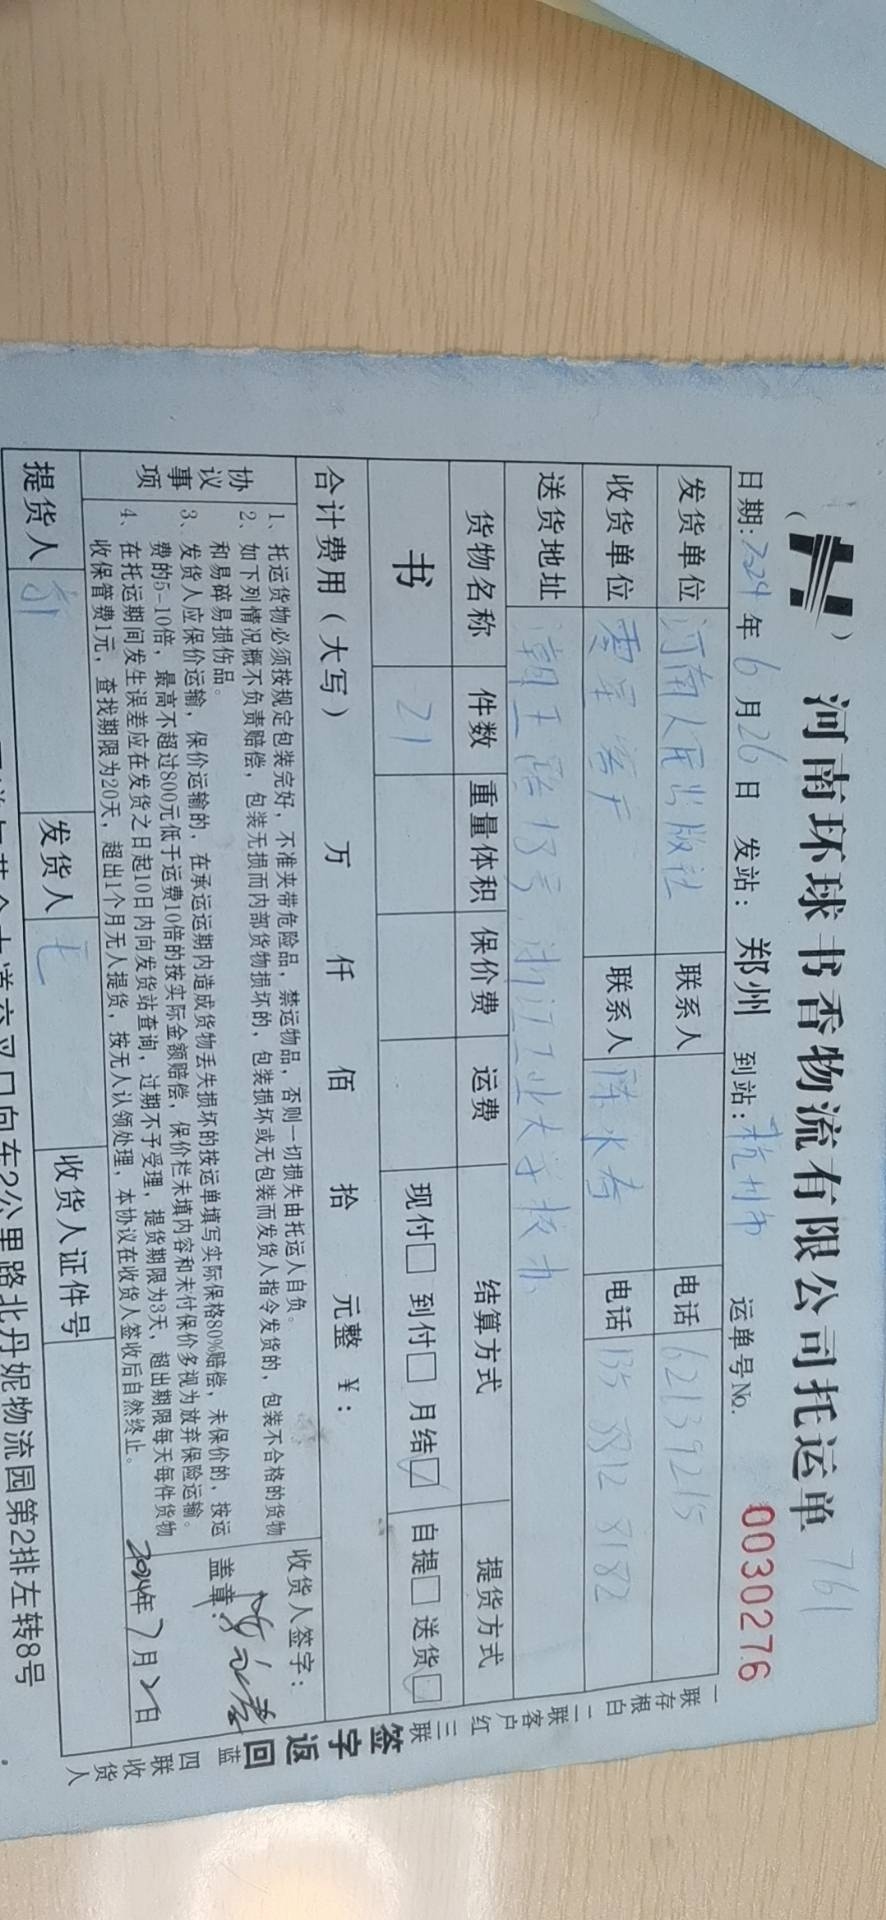 河南环球书香物流有限公司托运单 761
日期:2024年6月26日 发站:郑州 到站:杭州市 运单号No. 0030276
发货单位 河南人民出版社 联系人 电话 62139215
收货单位 联系人 电话 135 8812 8182
送货地址 潮王路18号 浙江工业大学校办
货物名称 件数 重量体积 保价费 运费 结算方式 提货方式
书 21 现付□ 到付□ 月结☑ 自提□ 送货☑
合计费用(大写) 万 仟 佰 拾 元整 ¥:
协议事项
1、托运货物必须按规定包装完好,不准夹带危险品,禁运物品,否则一切损失由托运人自负。
2、如下列情况概不负责赔偿,包装无损而内部货物损坏的,包装损坏或无包装而发货人指令发货的,包装不合格的货物
和易碎易损伤品。
3、发货人应保价运输,保价运输的,在承运运期内造成货物丢失损坏的按运单填写实际保格80%赔偿,未保价的,按运
费的5-10倍,最高不超过800元低于运费10倍的按实际金额赔偿,保价栏未填内容和未付保价多视为放弃保险运输。
4、在托运期间发生误差应在发货之日起10日内向发货站查询,过期不予受理,提货期限为3天,超出期限每天每件货物
收保管费1元,查找期限为20天,超出1个月无人提货,按无人认领处理,本协议在收货人签收后自然终止。
收货人签字:
盖章:
2024年7月2日
提货人 发货人 收货人证件号
交叉口向东2公里路北丹妮物流园第2排左转8号
一联存根白 二联客户红 三联签字返回蓝 四联收货人